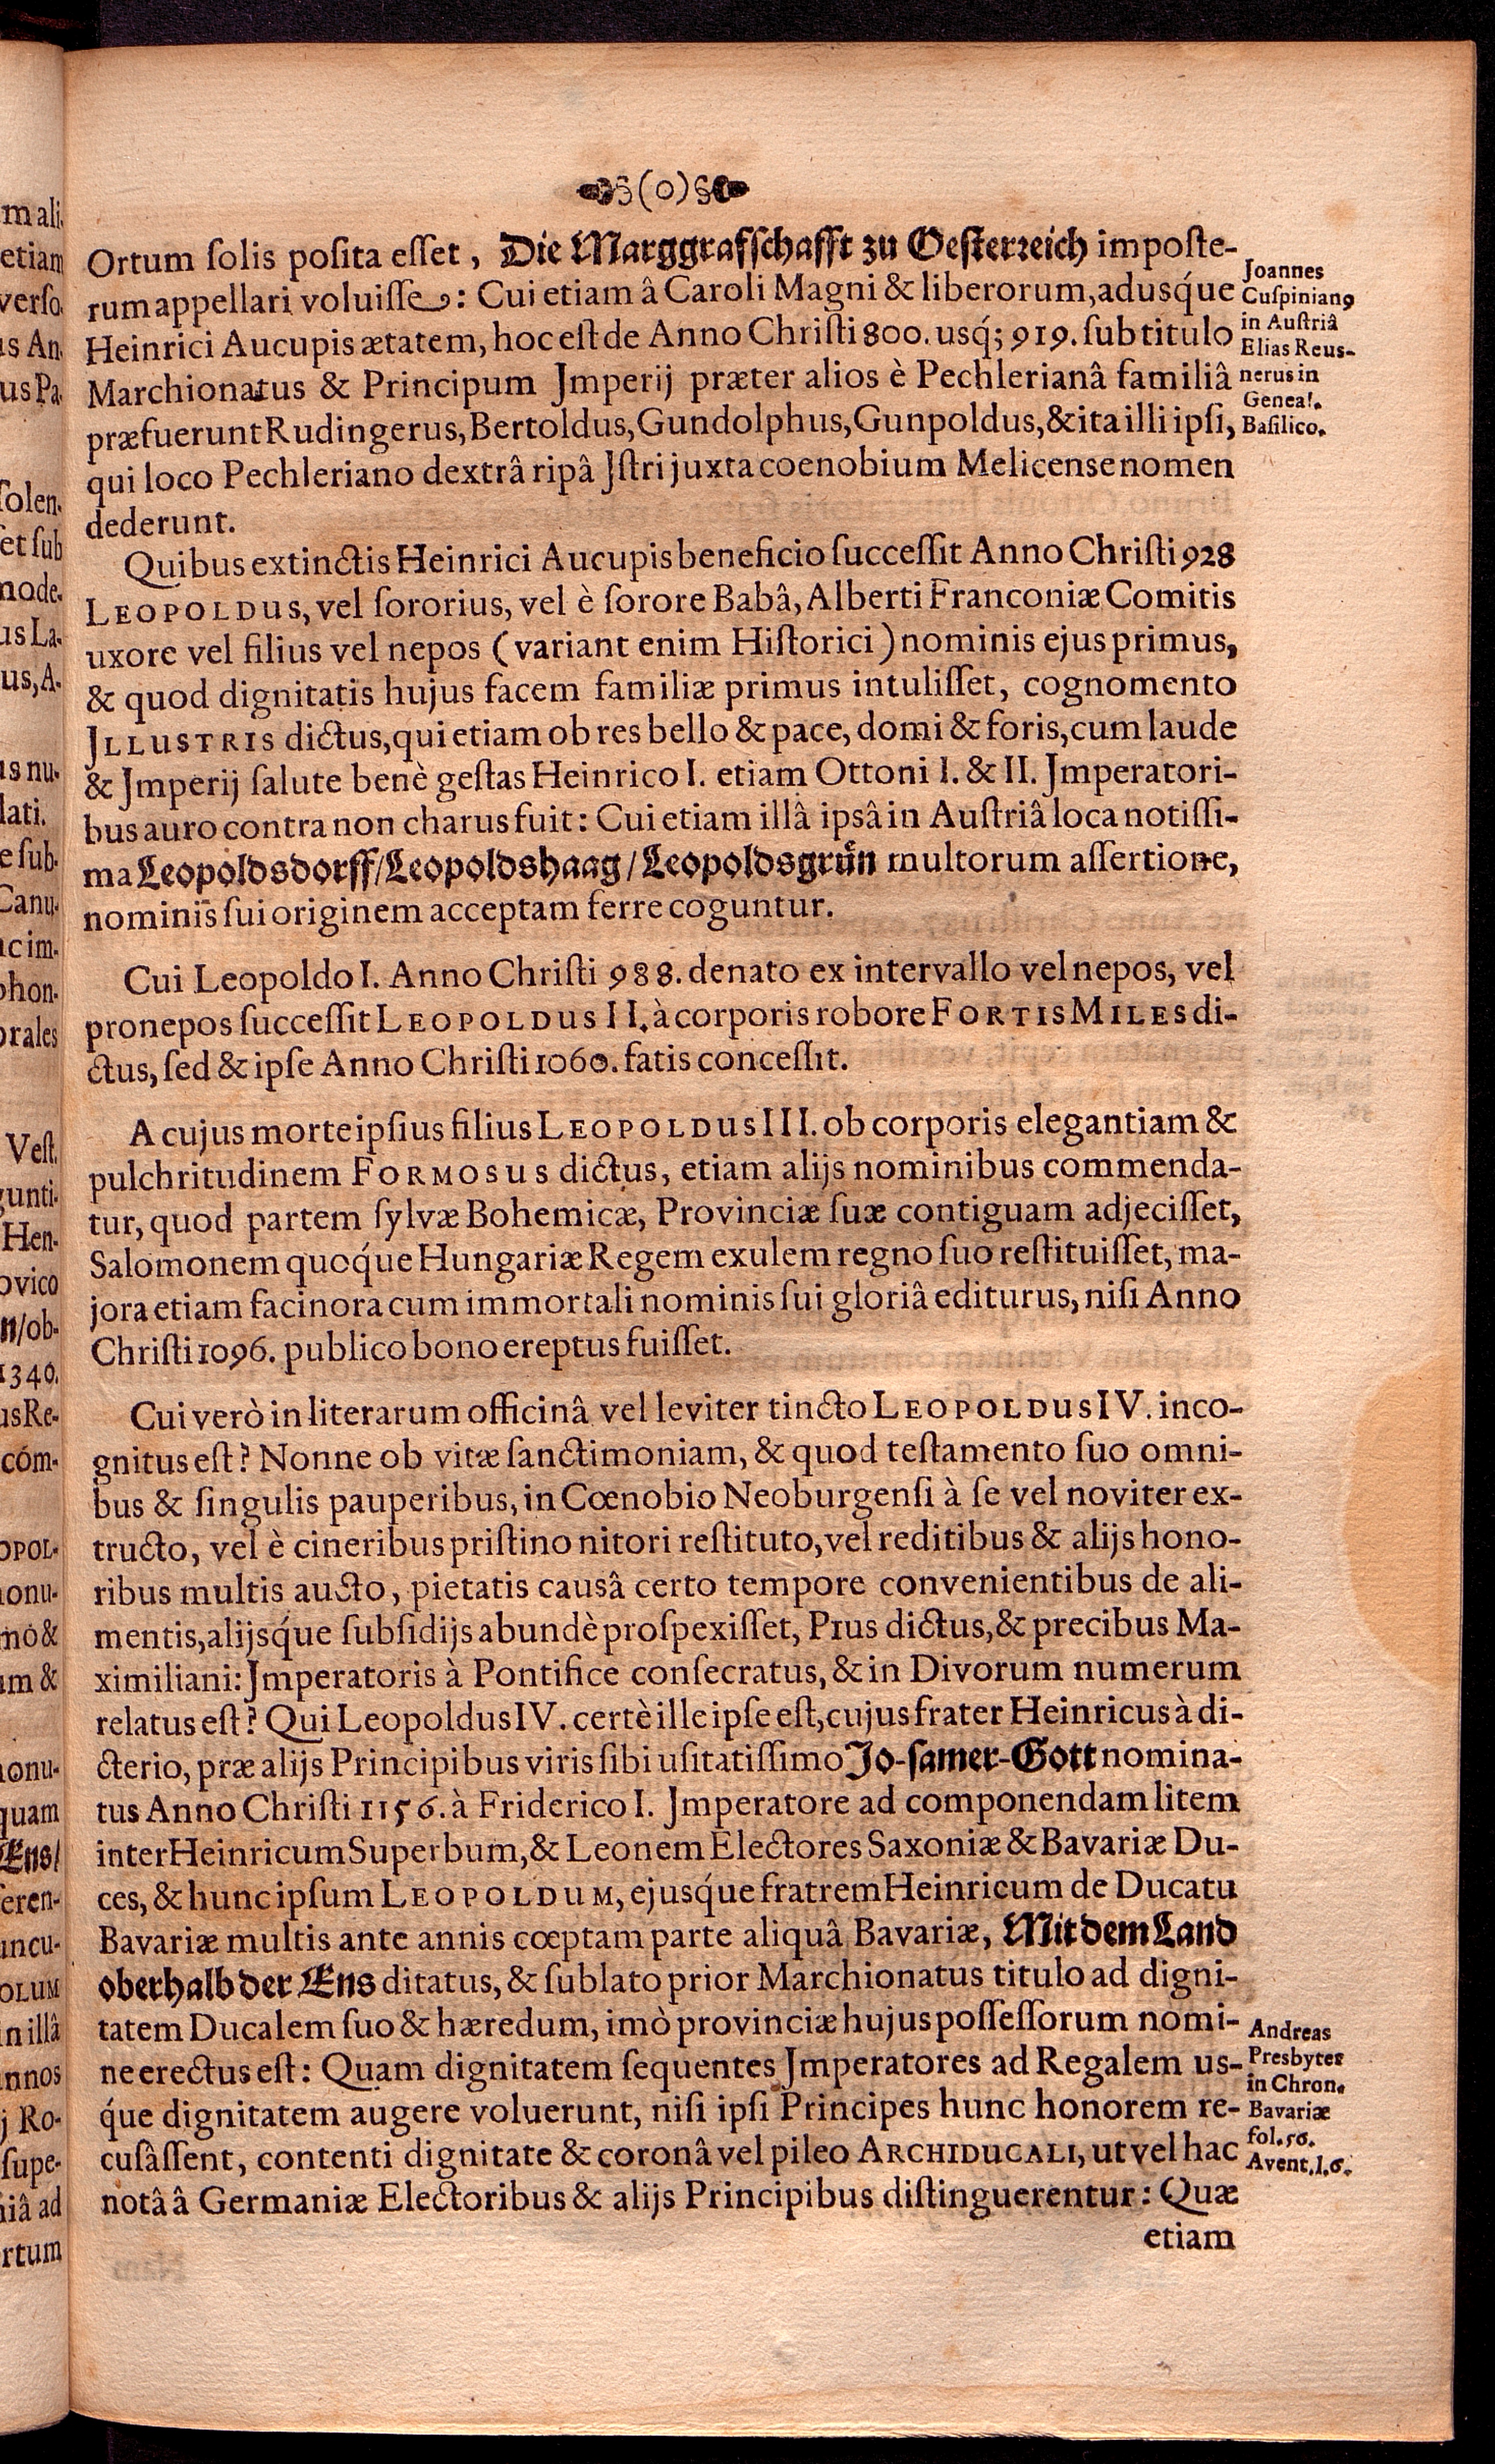 (o)
Ortum ſolis poſita eſſet, Die Marggrafſchafft zu Oeſterreich impoſte-
rum appellari voluiſſe: Cui etiam â Caroli Magni & liberorum, adusq́ue
Heinrici Aucupis ætatem, hoc eſt de Anno Chriſti 800. usq́; 919. ſub titulo
Marchionatus & Principum Jmperij præter alios è Pechlerianâ familiâ
præfuerunt Rudingerus, Bertoldus, Gundolphus, Gunpoldus, & ita illi ipſi,
qui loco Pechleriano dextrâ ripâ Jſtri juxta coenobium Melicenſe nomen
dederunt.
Joannes
Cuſpinianꝰ
in Auſtriâ
Elias Reus-
nerus in
Geneal.
Baſilico.
Quibus extinctis Heinrici Aucupis beneficio ſucceſſit Anno Chriſti 928
LEOPOLDUS, vel ſororius, vel è ſorore Babâ, Alberti Franconiæ Comitis
uxore vel filius vel nepos (variant enim Hiſtorici) nominis ejus primus,
& quod dignitatis hujus facem familiæ primus intuliſſet, cognomento
JLLUSTRIS dictus, qui etiam ob res bello & pace, domi & foris, cum laude
& Jmperij ſalute benè geſtas Heinrico I. etiam Ottoni I. & II. Jmperatori-
bus auro contra non charus fuit: Cui etiam illâ ipsâ in Auſtriâ loca notiſſi-
ma Leopoldsdorff/Leopoldshaag/Leopoldsgrün multorum aſſertione,
nominis ſui originem acceptam ferre coguntur.
Cui Leopoldo I. Anno Chriſti 988. denato ex intervallo vel nepos, vel
pronepos ſucceſſit LEOPOLDUS II. à corporis robore FORTIS MILES di-
ctus, ſed & ipſe Anno Chriſti 1060. fatis conceſſit.
A cujus morte ipſius filius LEOPOLDUS III. ob corporis elegantiam &
pulchritudinem FORMOSUS dictus, etiam alijs nominibus commenda-
tur, quod partem ſylvæ Bohemicæ, Provinciæ ſuæ contiguam adjeciſſet,
Salomonem quoq́ue Hungariæ Regem exulem regno ſuo reſtituiſſet, ma-
jora etiam facinora cum immortali nominis ſui gloriâ editurus, niſi Anno
Chriſti 1096. publico bono ereptus fuiſſet.
Cui verò in literarum officinâ vel leviter tincto LEOPOLDUS IV. inco-
gnitus eſt? Nonne ob vitæ ſanctimoniam, & quod teſtamento ſuo omni-
bus & ſingulis pauperibus, in Cœnobio Neoburgenſi à ſe vel noviter ex-
tructo, vel è cineribus priſtino nitori reſtituto, vel reditibus & alijs hono-
ribus multis aucto, pietatis causâ certo tempore convenientibus de ali-
mentis, alijsq́ue ſubſidijs abundè proſpexiſſet, PIUS dictus, & precibus Ma-
ximiliani: Jmperatoris à Pontifice conſecratus, & in Divorum numerum
relatus eſt? Qui Leopoldus IV. certè ille ipſe eſt, cujus frater Heinricus à di-
cterio, præ alijs Principibus viris ſibi uſitatiſſimo Jo-ſamer-Gott nomina-
tus Anno Chriſti 1156. à Friderico I. Jmperatore ad componendam litem
inter Heinricum Superbum, & Leonem Electores Saxoniæ & Bavariæ Du-
ces, & hunc ipſum LEOPOLDUM, ejusq́ue fratrem Heinricum de Ducatu
Bavariæ multis ante annis cœptam parte aliquâ Bavariæ, Mit dem Land
oberhalb der Ens ditatus, & ſublato prior Marchionatus titulo ad digni-
tatem Ducalem ſuo & hæredum, imò provinciæ hujus poſſeſſorum nomi-
ne erectus eſt: Quam dignitatem ſequentes Jmperatores ad Regalem us-
q́ue dignitatem augere voluerunt, niſi ipſi Principes hunc honorem re-
cuſâſſent, contenti dignitate & coronâ vel pileo ARCHIDUCALI, ut vel hac
notâ â Germaniæ Electoribus & alijs Principibus diſtinguerentur: Quæ
Andreas
Presbyter
in Chron.
Bavariæ
fol. 50.
Avent. l. 6.
etiam